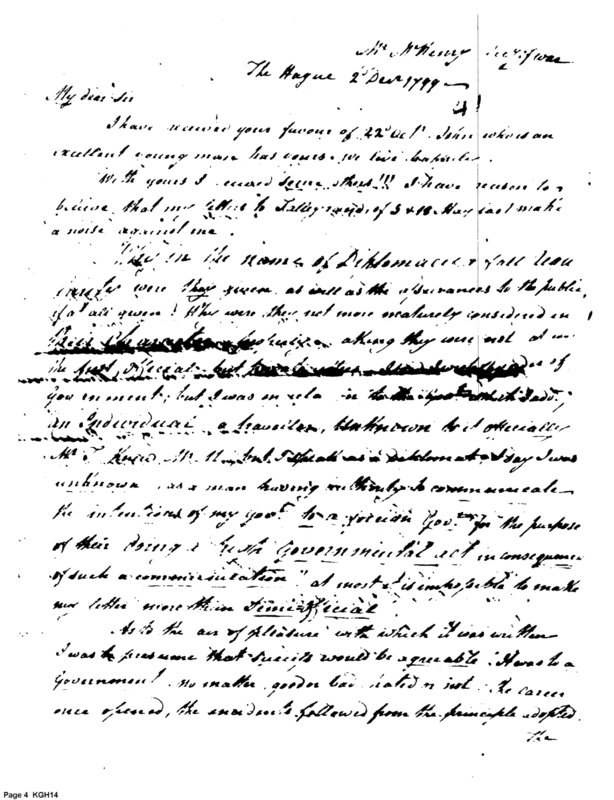 Mr. McHenry Secy of war
The Hague 2d Decr 1799
My dear Sir
I have received your favour of 22d Octr. John who is an
excellent young man has yours. we live
With yours I several others!!! I have reason to
believe that my letters to Talleyrand of 5 & 18 May last make
a noise against me.
Why in the name of Diplomacie & of all
were they given as well as the assurances to the public,
if at all given? Why were they not more maturely considered in
their Character speaking they were not at
the first, official
government, but I was in to the Govt which I
an Individual, a traveller, Unknown to it officially
Mr. T. knew Mr. M. but I speak as a diplomat I say I was
unknown as a man having authority to communicate
the intentions of my Govt. to a foreign Govt. for the purpose
of their doing a Governmental act in consequence
of such a communication at most it is impossible to make
my letter more than Semi official
As to the air of pleasure with which it was written
I was to presume that would be agreeable. It was to a
Government no matter good or bad hated or not. The career
once opened, the incidents followed from the principle adopted.
The
Page 4 KGH14